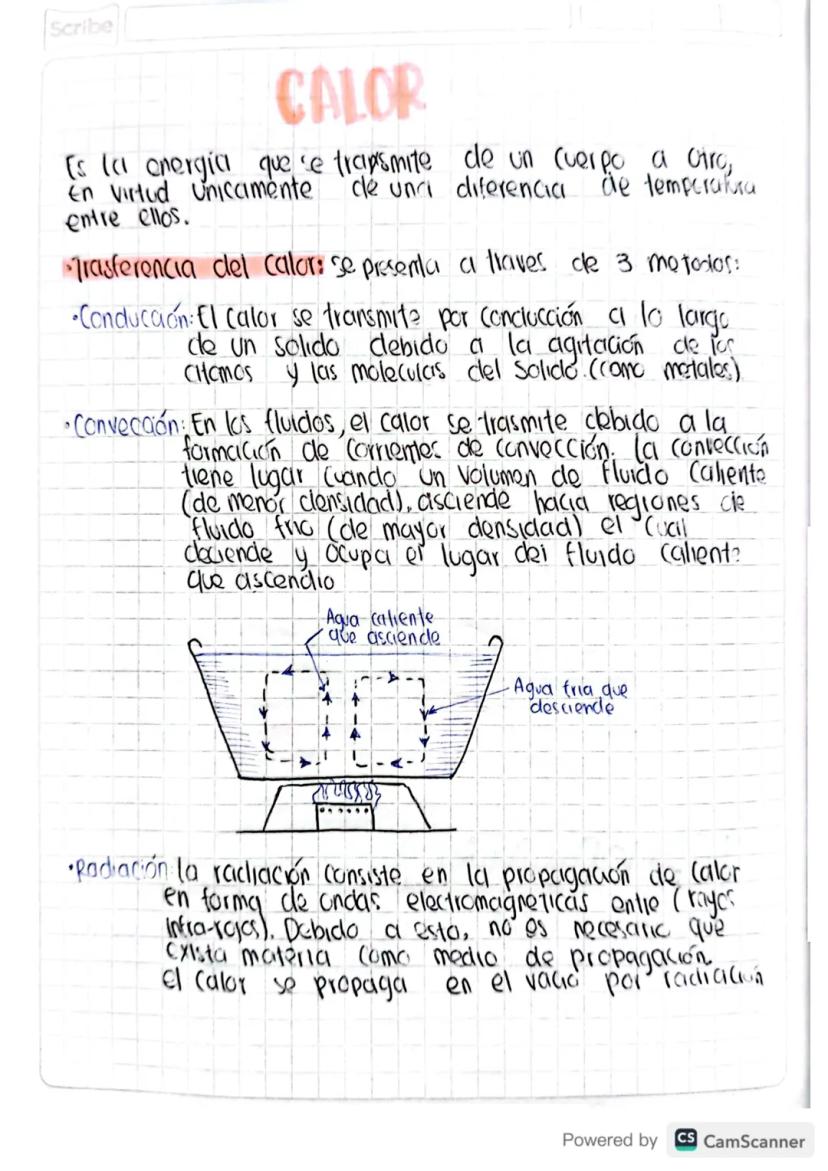 Scribe
CALOR
Es la energía que se transmite de un cuerpo a otro,
en virtud únicamente de una diferencia de temperatura
entre ellos.
•Trasferencia del calor: se presenta a traves de 3 metodos:
•Conducción: El calor se transmite por conducción a lo largo
de un solido debido a la agitación de los
atomos y las moleculas del solido. (como metales)
•Convección: En los fluidos, el calor se trasmite debido a la
formación de corrientes de convección. La convección
tiene lugar cuando un volumen de fluido caliente
(de menor densidad), asciende hacia regiones de
fluido frio (de mayor densidad) el cual
deciende y ocupa el lugar del fluido caliente
que ascendio
Agua caliente
que asciende
Agua fria que
desciende
•Radiación: la radiación consiste en la propagación de calor
en forma de ondas electromagneticas entre (rayos
infra-rojos). Debido a esto, no es necesario que
exista materia como medio de propagación
El calor se propaga en el vacio por radiación
Powered by CS CamScanner